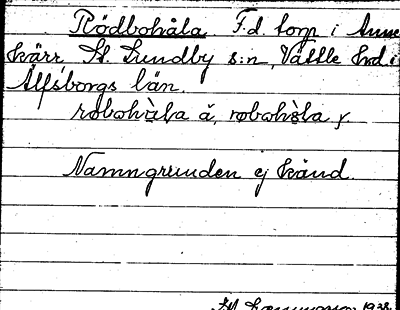 Rödbohåla. F.d. torp i Anne
kärr St. Lundby s:n, Vättle hd. i
Älfsborgs län.
robohåla ä, robohòla y
Namngrunden ej känd.
1938.